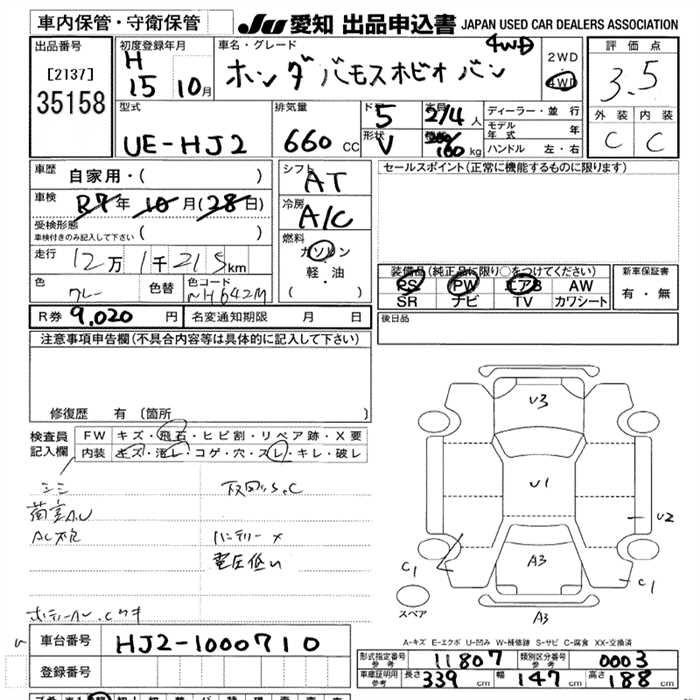 車内保管・守衛保管
JU 愛知 出品申込書 JAPAN USED CAR DEALERS ASSOCIATION
出品番号
[2137]
35158
初度登録年月
H
15 10月
車名・グレード
4WD
ホンダ バモスホビオ バン
2WD
4WD
評価点
3.5
外装 内装
C C
型式
UE-HJ2
排気量
660 CC
ド
5
形状
V
定員
2/4人
160 kg
ディーラー・並行
モデル年式 年
ハンドル 左・右
車歴
自家用・( )
車検
R7年 10月(28日)
受検形態
車検付きのみ記入して下さい ( )
走行
12万1千215km
色
グレー
色替
色コード
NH642M
シフト
AT
冷房
A/C
燃料
ガソリン
軽・油
( )
セールスポイント(正常に機能するものに限ります)
装備品(純正品に限り○をつけてください)
PS PW エアB AW
SR ナビ TV カワシート
新車保証書
有・無
R券 9,020円
名変通知期限 月 日
後日品
注意事項申告欄(不具合内容等は具体的に記入して下さい)
修復歴 有〔箇所 〕
検査員記入欄
FW キズ・飛石・ヒビ割・リペア跡・X要
内装 キズ・汚レ・コゲ・穴・スレ・キレ・破レ
シミ
荷室A.U
バッテリー×
電圧低い
V3
U1
U2
A3
C1
C1
A3
スペア
A-キズ E-エクボ U-凹み W-補修跡 S-サビ C-腐食 XX-交換済
車台番号 HJ2-1000710
登録番号
形式指定番号 参考 11807
類別区分番号 参考 0003
車庫証明用 参考 長さ 339cm 幅 147cm 高さ 188cm